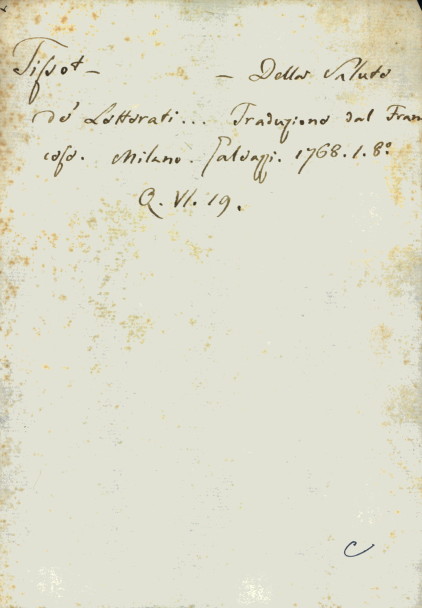 Tissot — — Della Salute
de' Letterati... Traduzione dal Fran
cese. Milano. Galeazzi. 1768. 1. 8.º
Q. VI. 19.
C